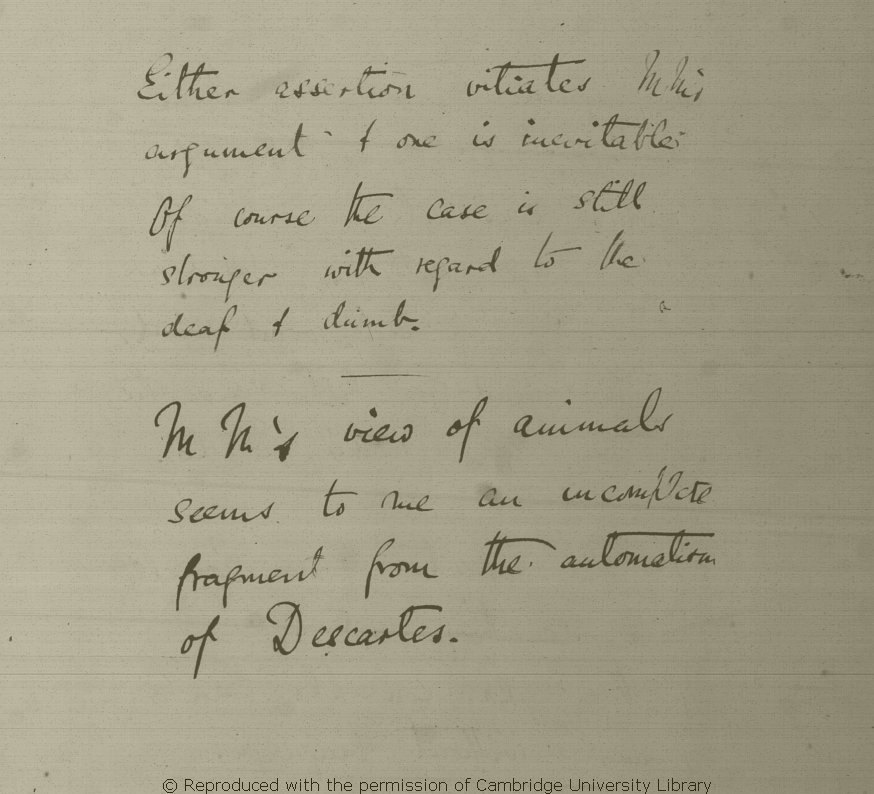 Either assertion vitiates M M's
argument & one is inevitable.
Of course the case is still
stronger with regard to the
deaf & dumb.
M M's view of animals
seems to me an incomplete
fragment from the automatism
of Descartes.
© Reproduced with the permission of Cambridge University Library